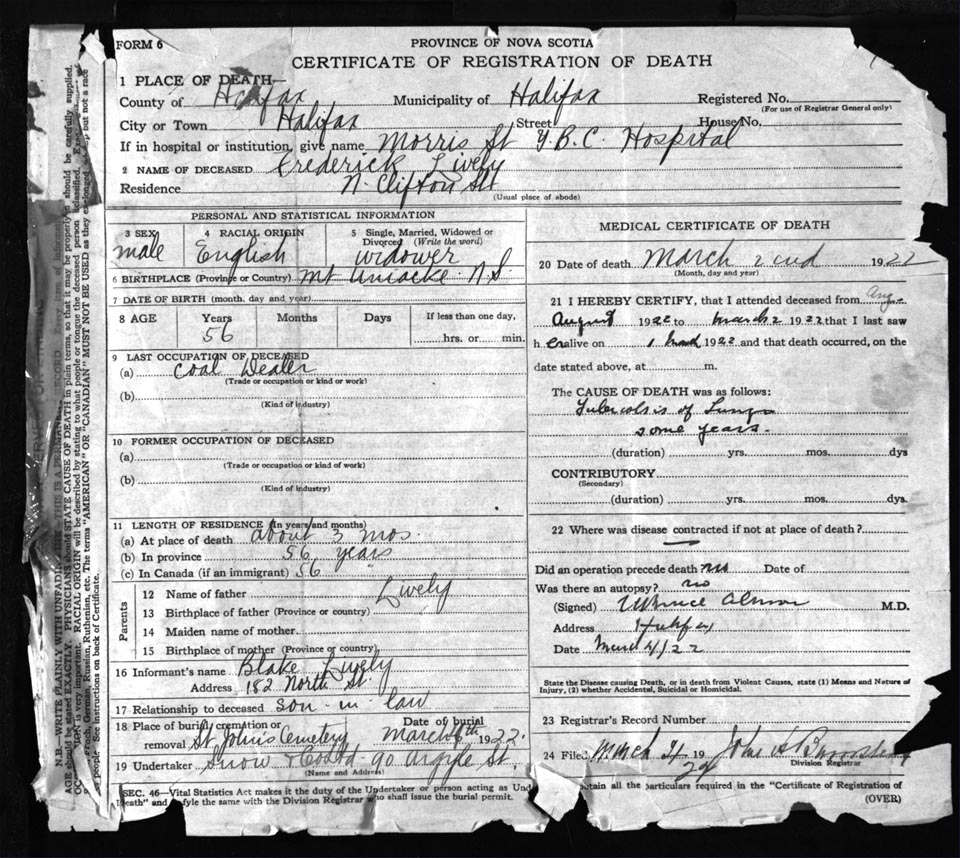 FORM 6
PROVINCE OF NOVA SCOTIA
CERTIFICATE OF REGISTRATION OF DEATH
1 PLACE OF DEATH—
County of Halifax Municipality of Halifax Registered No.
(For use of Registrar General only)
City or Town Halifax Street House No.
If in hospital or institution, give name Morris St Hospital
2 NAME OF DECEASED Frederick Lively
Residence N. Clifton St
(Usual place of abode)
PERSONAL AND STATISTICAL INFORMATION
3 SEX male
4 RACIAL ORIGIN English
5 Single, Married, Widowed or Divorced (Write the word) widower
6 BIRTHPLACE (Province or Country) Mt Uniacke N S
7 DATE OF BIRTH (month, day and year)
8 AGE Years 56 Months Days If less than one day, hrs. or min.
9 LAST OCCUPATION OF DECEASED
(a) Coal Dealer
(Trade or occupation or kind or work)
(b)
(Kind of industry)
10 FORMER OCCUPATION OF DECEASED
(a)
(Trade or occupation or kind of work)
(b)
(Kind of industry)
11 LENGTH OF RESIDENCE (in years and months)
(a) At place of death about 3 mos.
(b) In province 56 years
(c) In Canada (if an immigrant) 56 "
Parents
12 Name of father Lively
13 Birthplace of father (Province or country)
14 Maiden name of mother
15 Birthplace of mother (Province or country)
16 Informant's name Blake Lively
Address 182 North St.
17 Relationship to deceased son-in-law
18 Place of burial, cremation or removal St John's Cemetery Date of burial March 1922.
19 Undertaker Snow & Co Ltd. 90 Argyle St.
(Name and Address)
MEDICAL CERTIFICATE OF DEATH
20 Date of death March 2nd 1922
(Month, day and year)
21 I HEREBY CERTIFY, that I attended deceased from Aug.
August 1922 to March 2 1922 that I last saw
h alive on 1 March 1922 and that death occurred, on the
date stated above, at m.
The CAUSE OF DEATH was as follows:
Tubercolsis of Lungs
some years.
(duration) yrs. mos. dys
CONTRIBUTORY
(Secondary)
(duration) yrs. mos. dys.
22 Where was disease contracted if not at place of death?
Did an operation precede death? no Date of
Was there an autopsy? no
(Signed) Bruce Almon M.D.
Address Halifax
Date March 4/22
State the Disease causing Death, or in death from Violent Causes, state (1) Means and Nature of
Injury, (2) whether Accidental, Suicidal or Homicidal.
23 Registrar's Record Number
24 Filed March 19 John A
Division Registrar
SEC. 46—Vital Statistics Act makes it the duty of the Undertaker or person acting as Und
Death" and style the same with the Division Registrar who shall issue the burial permit.
obtain all the particulars required in the "Certificate of Registration of
(OVER)
N.B.—WRITE PLAINLY WITH UNFADING THIS IS A PERMANENT RECORD
AGE should be stated EXACTLY. PHYSICIANS should STATE CAUSE OF DEATH in plain terms, so that it may be properly
should be carefully supplied.
is very important. RACIAL ORIGIN will be described by stating to what people or tongue the deceased person
French, German, Russian, Ruthenian, etc. The terms "AMERICAN" OR "CANADIAN" MUST NOT BE USED as they but not a race
or people. See instructions on back of Certificate.